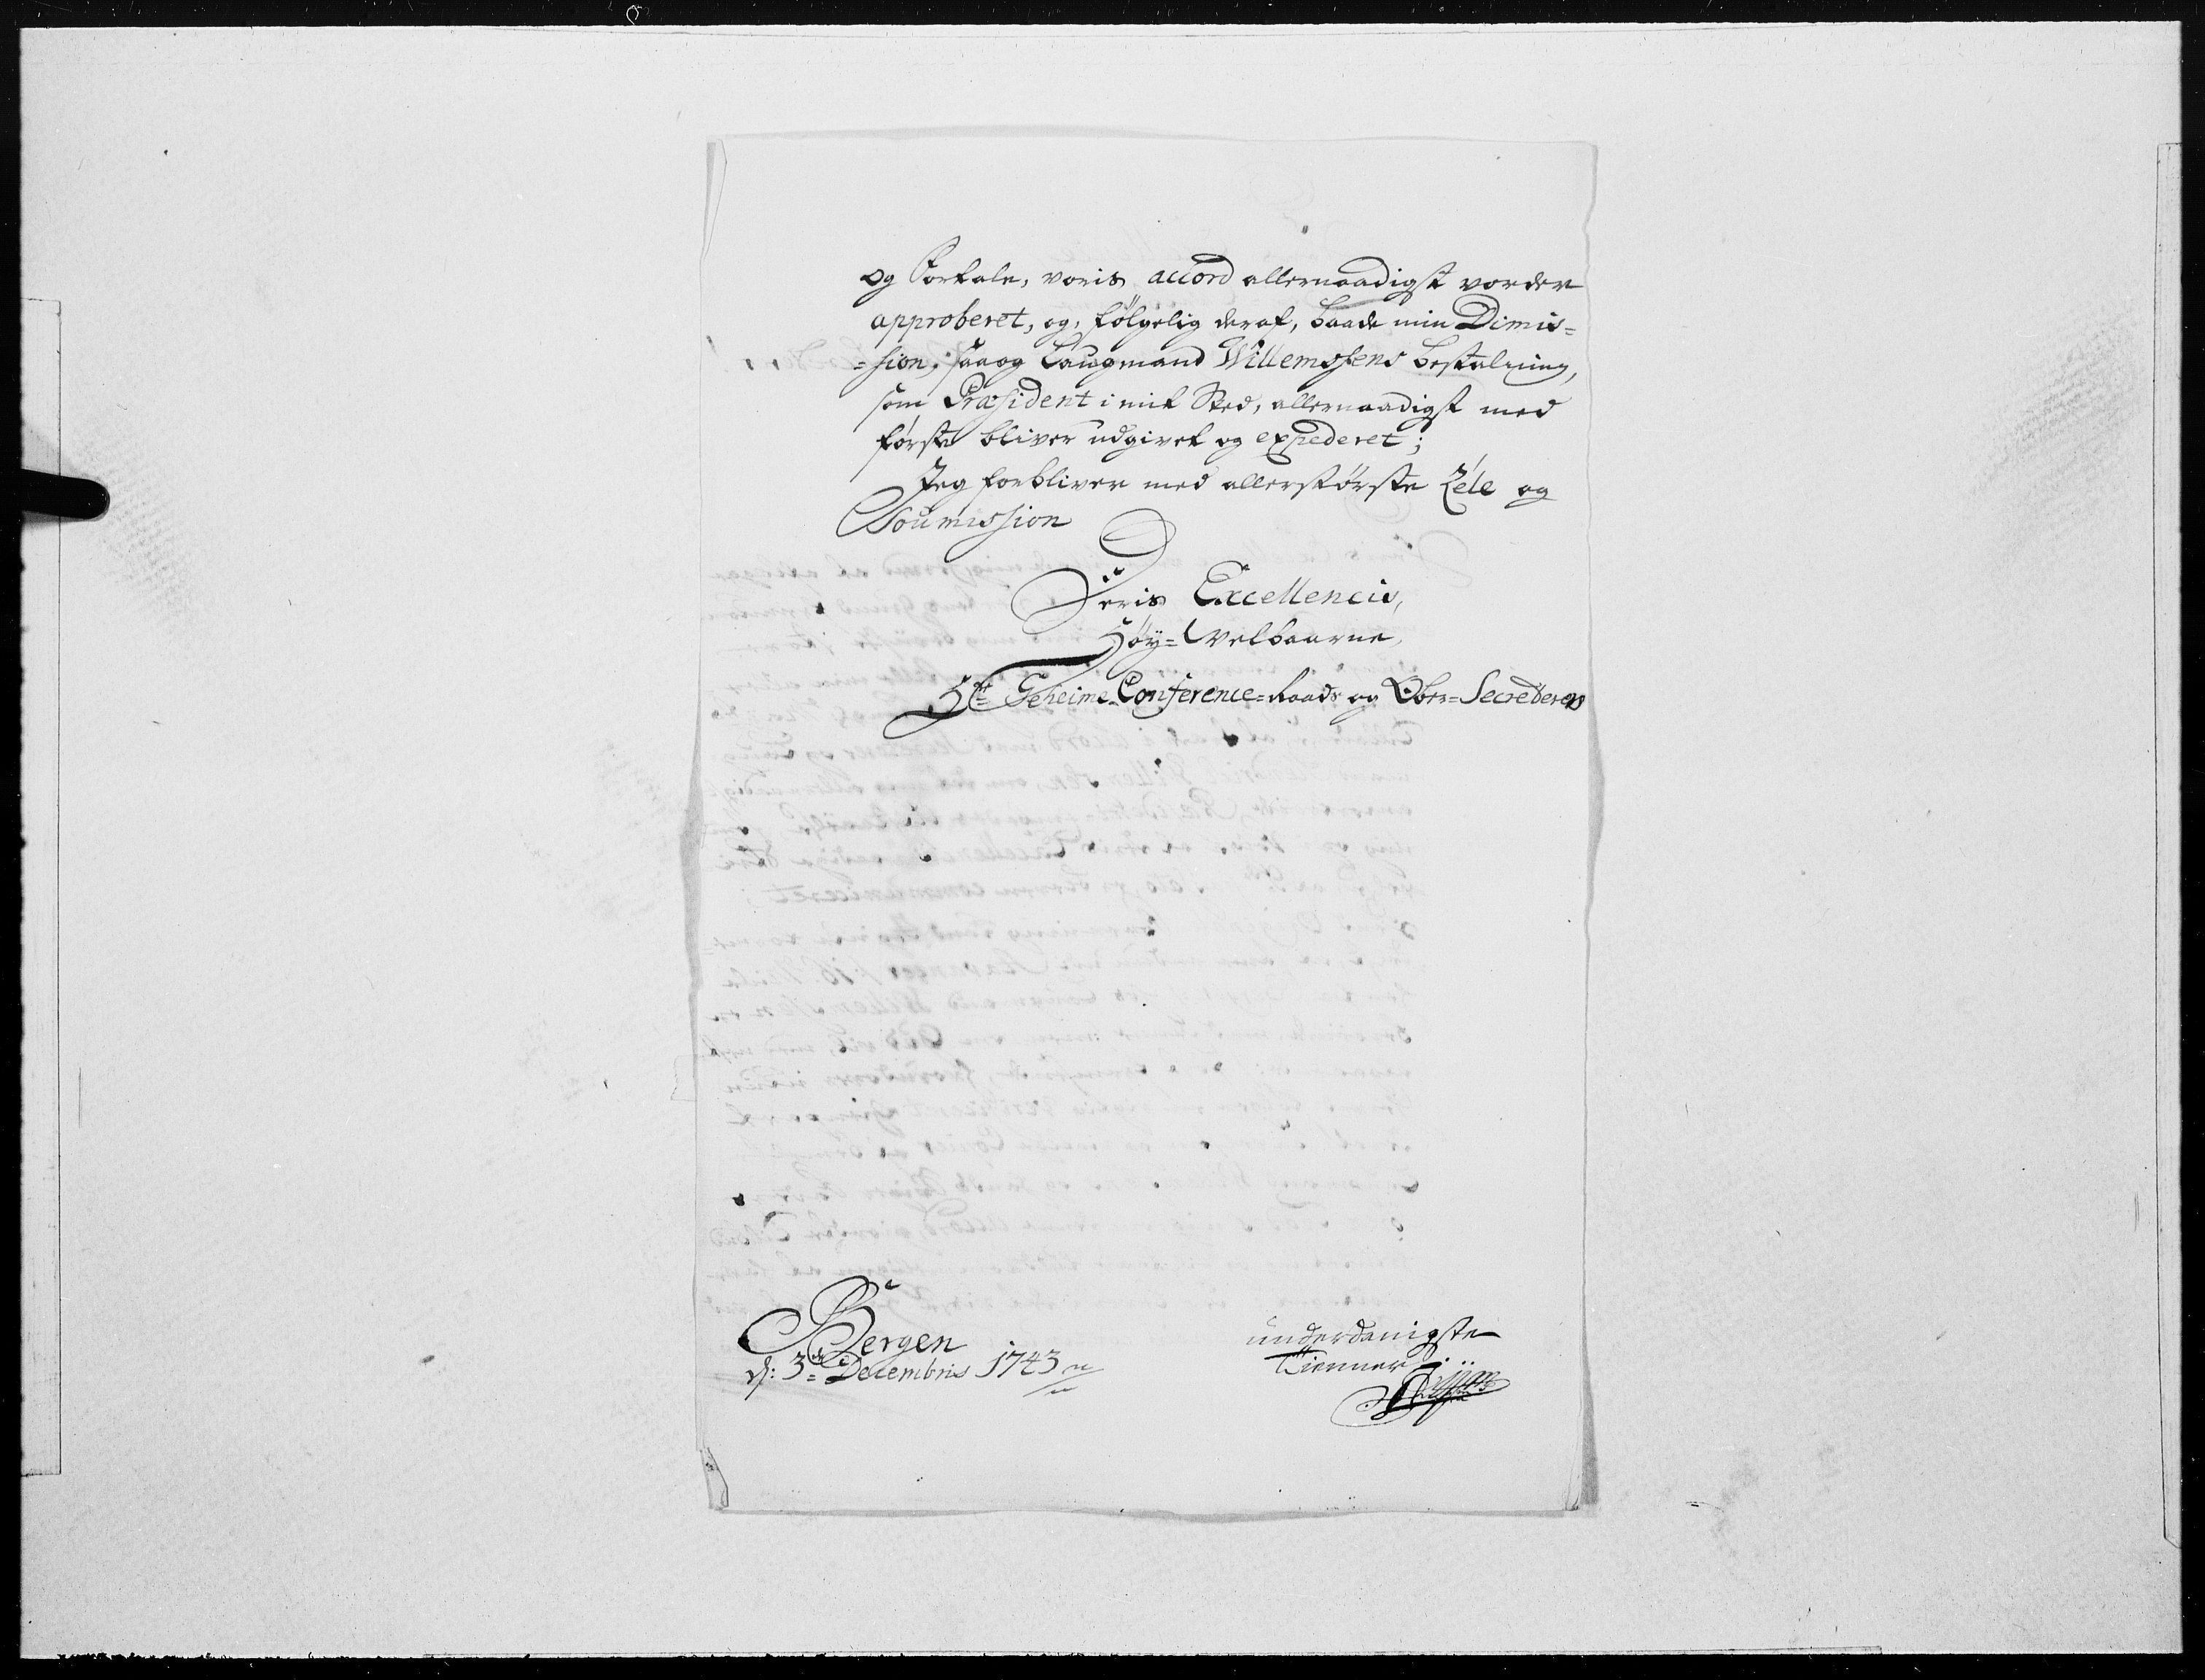 og Fortale, voris accord allernaadigst vorder
approberet, og, følgelig deraf, baade min Dimis=
=sion, saa og Laugmand Willemssens bestalning,
som Præsident i mit Sted, allernaadigst med
første bliver udgivet og expederet;
Jeg forbliver med allerstørste Zéle og
Soumission
Deris Excellencis,
Høy=Velbaarne,
Hr= Geheime=Conference=Raads og Ober=Secreterers
Bergen
d: 3die Decembris 1743
underdanigste
Tienner